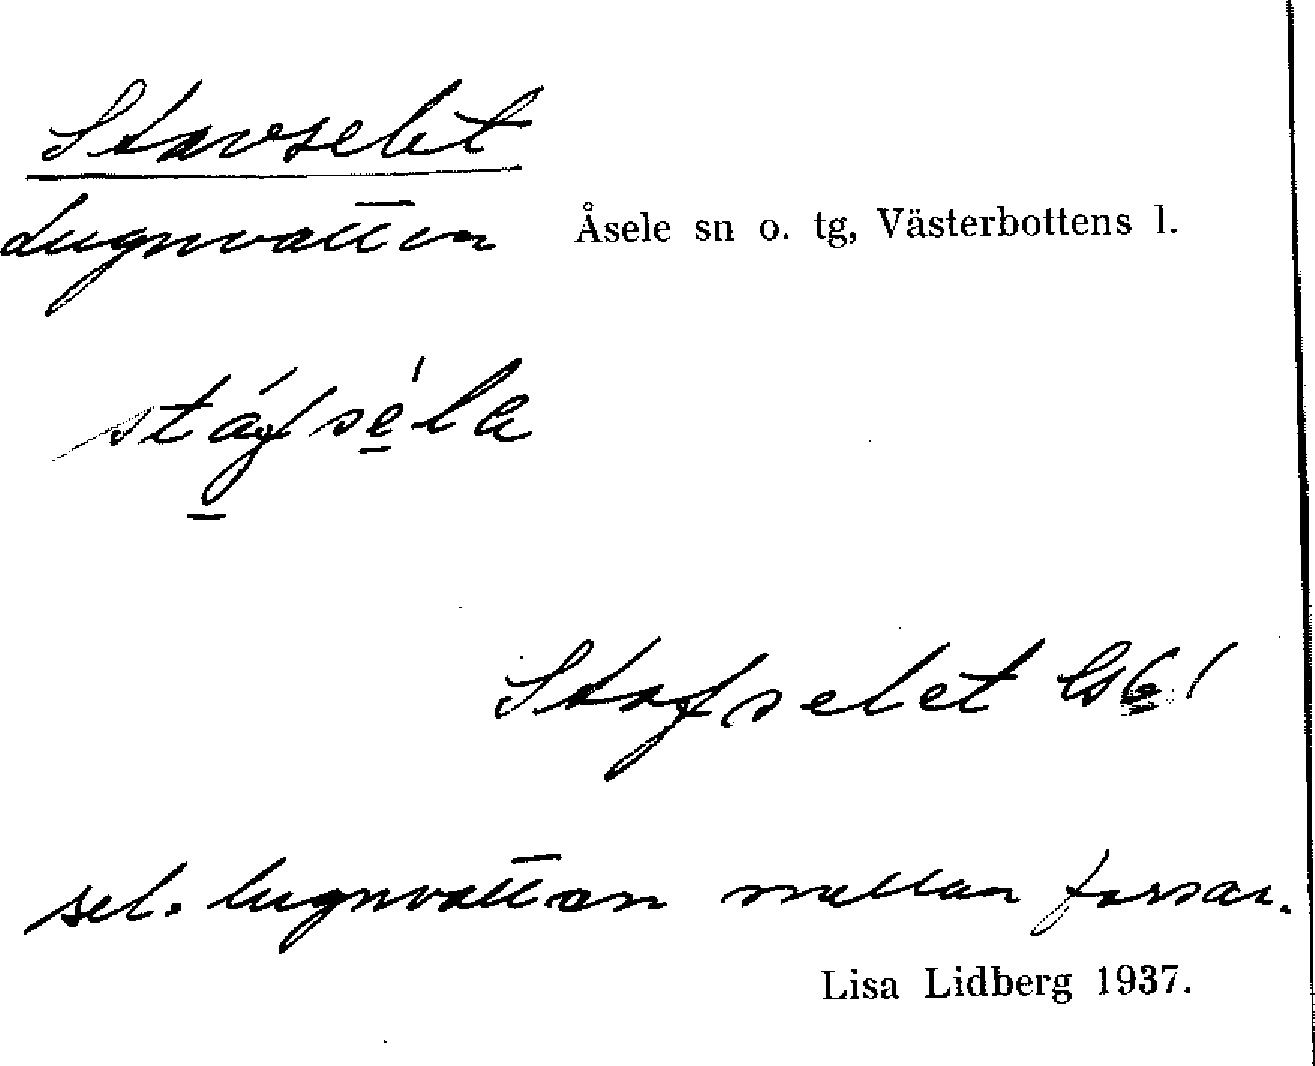 Stavselet
Lugnvatten Åsele sn o. tg, Västerbottens l.
stáfséla
Stafselet
sel. lugnvatten mellan forsar.
Lisa Lidberg 1937.